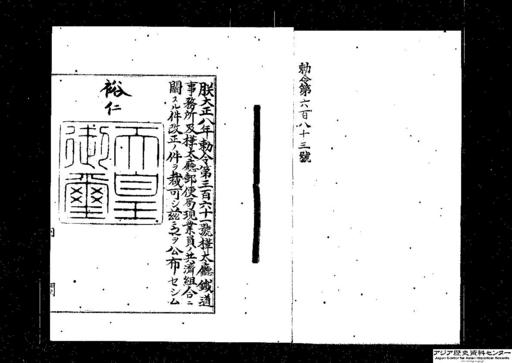 勅令第六百八十三號
朕大正八年勅令第三百六十一號樺太廳鐵道
事務所及樺太廳郵便局現業員ノ共濟組合ニ
關スル件改正ノ件ヲ裁可シ茲ニ之ヲ公布セシム
裕仁
天皇
御璽
内
閣
アジア歴史資料センター
Japan Center for Asian Historical Records